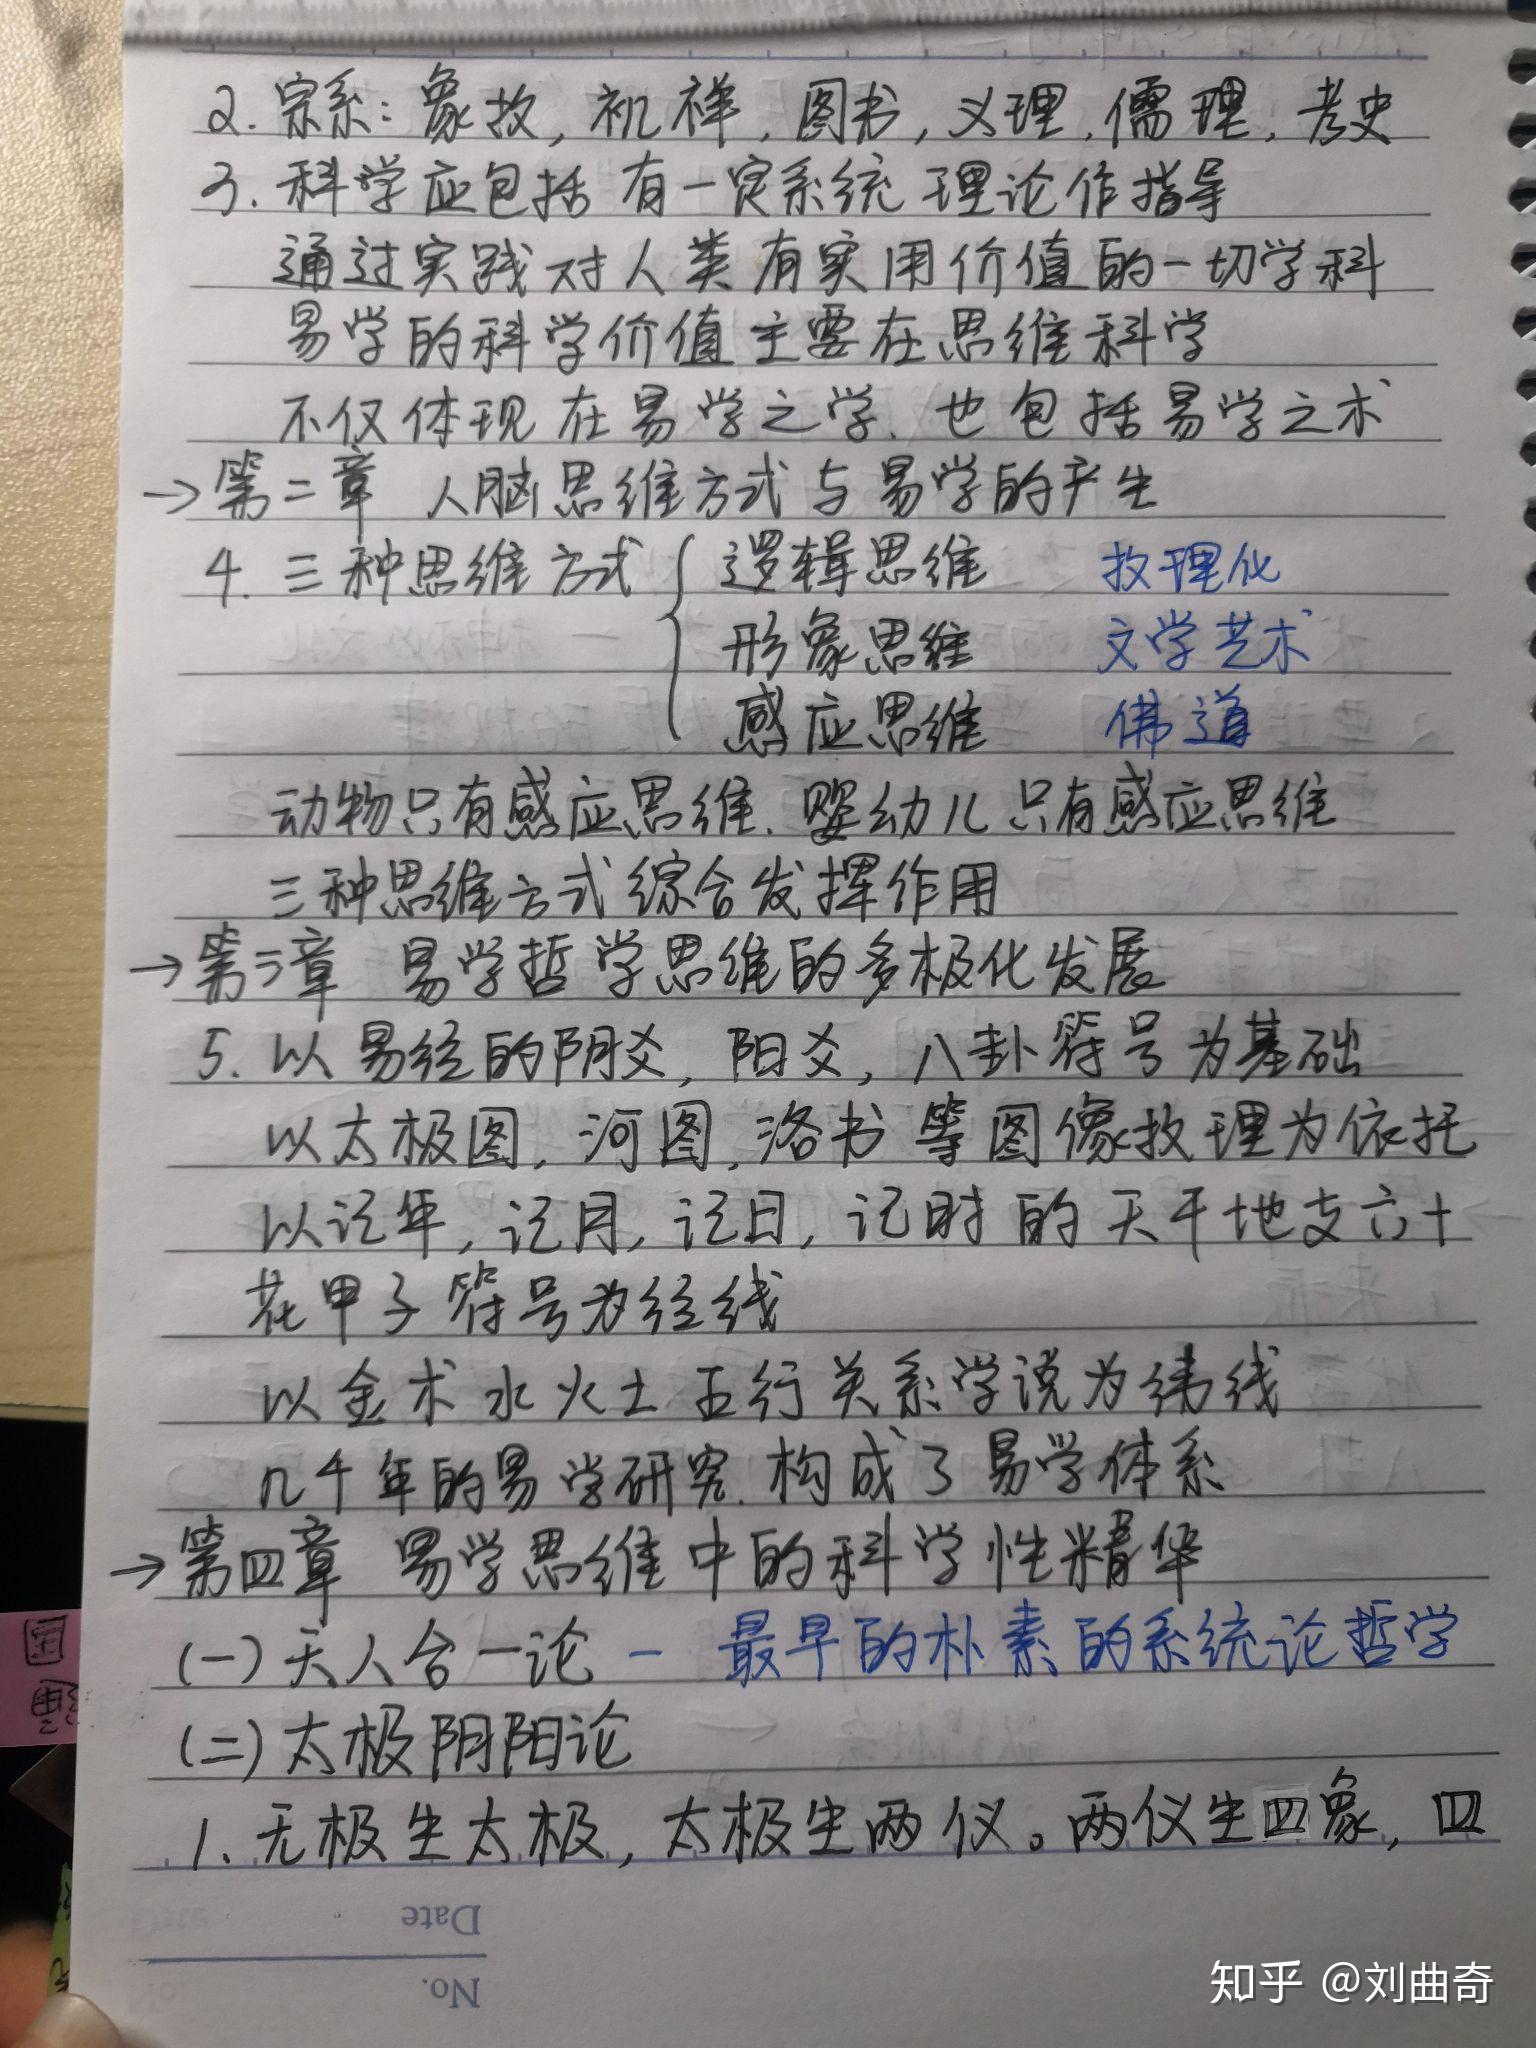 2. 宗系：象数，礻几祥，图书，义理，儒理，考史
3. 科学应包括有一定系统理论作指导
通过实践对人类有实用价值的一切学科
易学的科学价值主要在思维科学
不仅体现在易学之学、也包括易学之术
→第二章 人脑思维方式与易学的产生
4. 三种思维方式 { 逻辑思维 数理化
形象思维 文学艺术
感应思维 佛道
动物只有感应思维、婴幼儿只有感应思维
三种思维方式综合发挥作用
→第三章 易学哲学思维的多极化发展
5. 以易经的阴爻，阳爻，八卦符号为基础
以太极图，河图，洛书等图像数理为依托
以记年，记月，记日，记时的天干地支六十
花甲子符号为经线
以金木水火土五行关系学说为纬线
几千年的易学研究、构成了易学体系
→第四章 易学思维中的科学性精华
(一)天人合一论 - 最早的朴素的系统论哲学
(二)太极阴阳论
1. 无极生太极，太极生两仪。两仪生四象，四
Date
No.
知乎 @刘曲奇